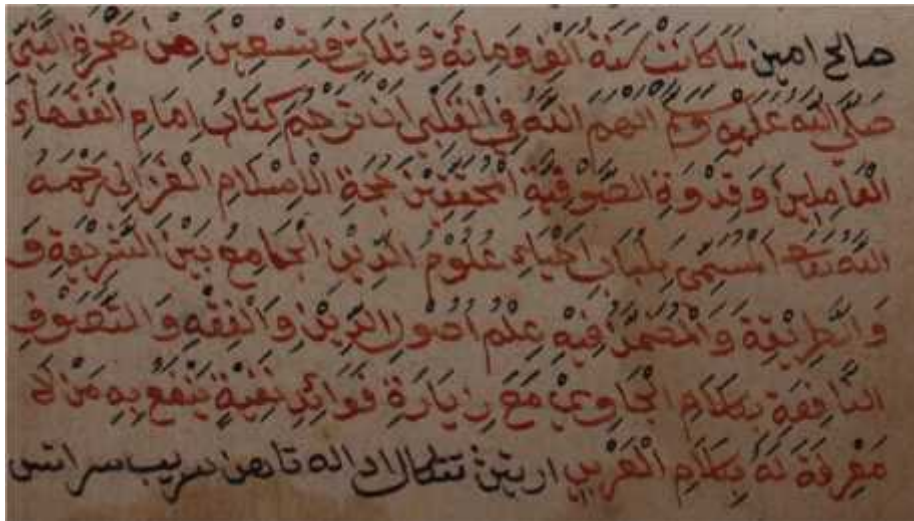 صالح امين لَمَّا كَانَتْ سَنَةُ أَلْفٍ وَمِائَةٍ وَثَلَاثٍ وَتِسْعِيْنَ مِنْ هِجْرَةِ النَّبِيِّ
صَلَّى اللَّهُ عَلَيْهِ وَسَلَّمَ أَلْهَمَ اللَّهُ فِي الْقَلْبِ أَنْ نُتَرْجِمَ كِتَابَ إِمَامِ الْفُقَهَاءِ
الْعَامِلِيْنَ وَقِدْوَةِ الصُّوْفِيَّةِ الْمُحَقِّقِيْنَ حُجَّةِ الْإِسْلَامِ الْغَزَالِى رَحِمَهُ
اللَّهُ تَعَالَى الْمُسَمَّى بِلُبَابِ اِحْيَاءِ عُلُوْمِ الدِّيْنِ الْجَامِعُ بَيْنَ الشَّرِيْعَةِ وَ
وَالطَّرِيْقَةِ وَالْمُضْمَرُ فِيْهِ عِلْمُ اُصُوْلِ الدِّيْنِ وَالْفِقْهِ وَالتَّصَوُّفِ
النَّافِعَةِ بِكَلَامِ الْجَاوِيْ مَعَ زِيَادَةِ فَوَائِدَ نَفِيْسَةٍ يَنْتَفِعُ بِهِ مَنْ لَا
مَعْرِفَةَ لَهُ بِكَلَامِ الْعَرَبِيِّ ارتيڽ تتكال اداله تاهن سريب سراتس